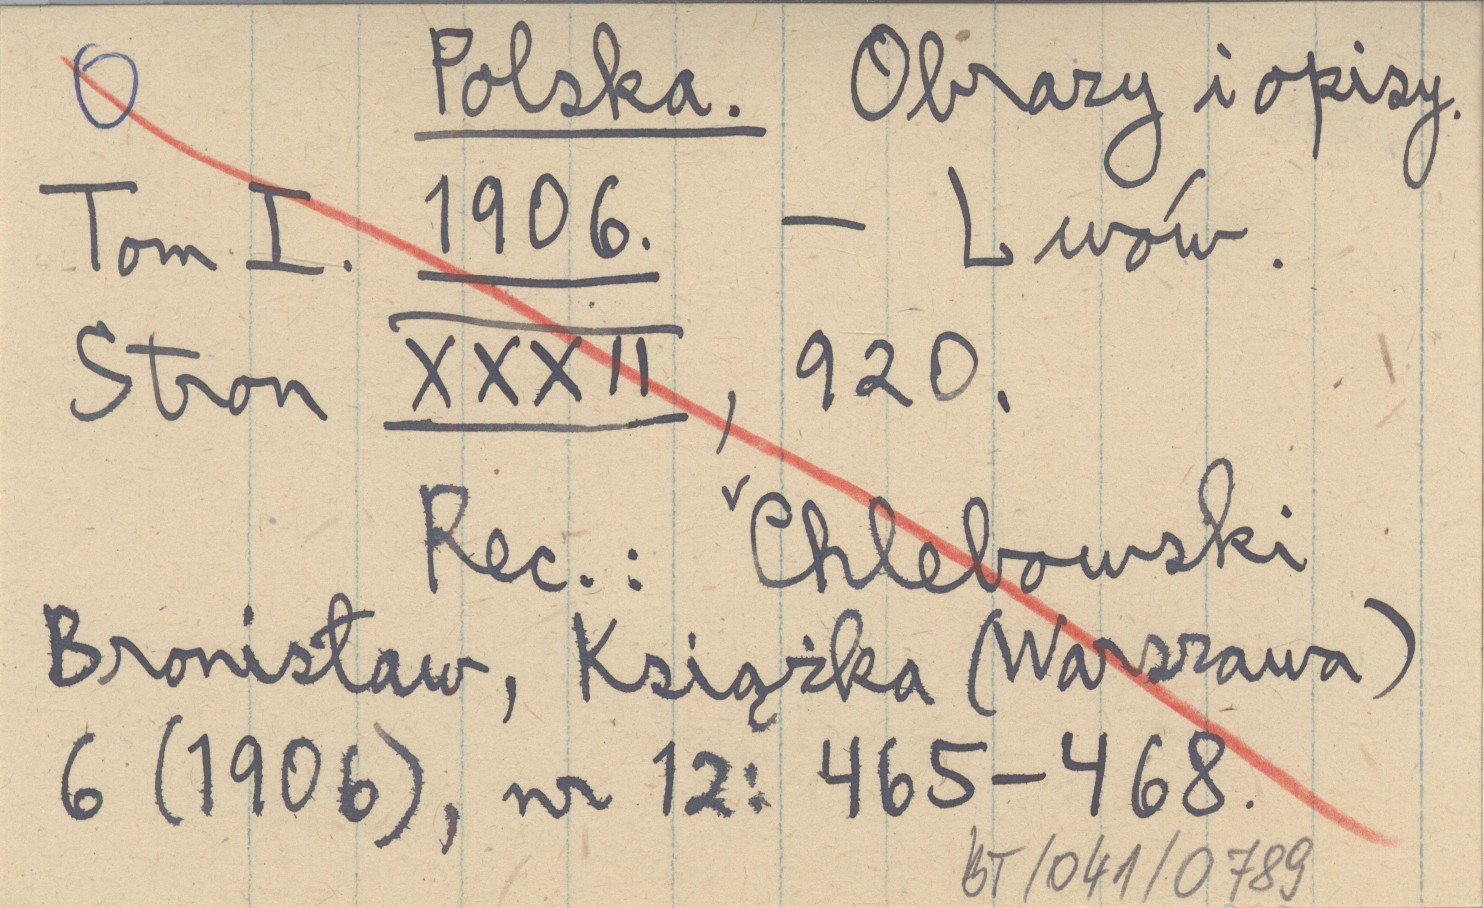 O Polska. Obrazy i opisy.
Tom I. 1906. – Lwów.
Stron XXXII, 920.
Rec.: ᵛChlebowski
Bronisław, Książka (Warszawa)
6 (1906), nr 12: 465–468.
BT/041/0789